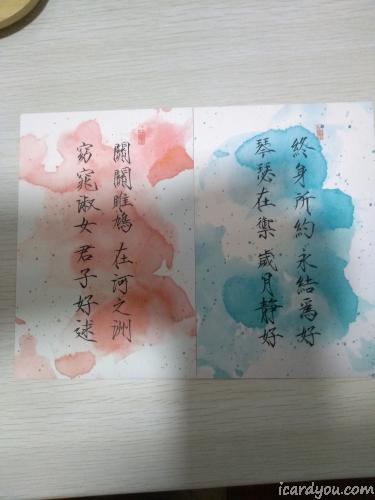 終身所約永結爲好
琴瑟在禦歲月靜好
關關雎鳩在河之洲
窈窕淑女君子好逑
icardyou.com